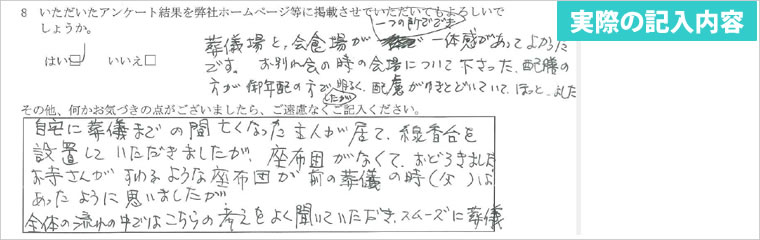 実際の記入内容
8 いただいたアンケート結果を弊社ホームページ等に掲載させていただいてもよろしいで
しょうか。
はい□ いいえ□
一つの所でできて
葬儀場と、会食場が 一体感があってよかった
です。お別れ会の時の会場について下さった、配膳の
方が御年配の方で、明るく、配慮がいきとどいていて、ほっとしました
(たが)
その他、何かお気づきの点がございましたら、ご遠慮なくご記入ください。
自宅に葬儀までの間亡くなった主人が居て、線香台を
設置していただきましたが、座布団がなくて、おどろきました
お寺さんがすわるような座布団が前の葬儀の時(父)は
あったように思いましたが
全体の流れの中ではこちらの考えをよく聞いていただき、スムーズに葬儀